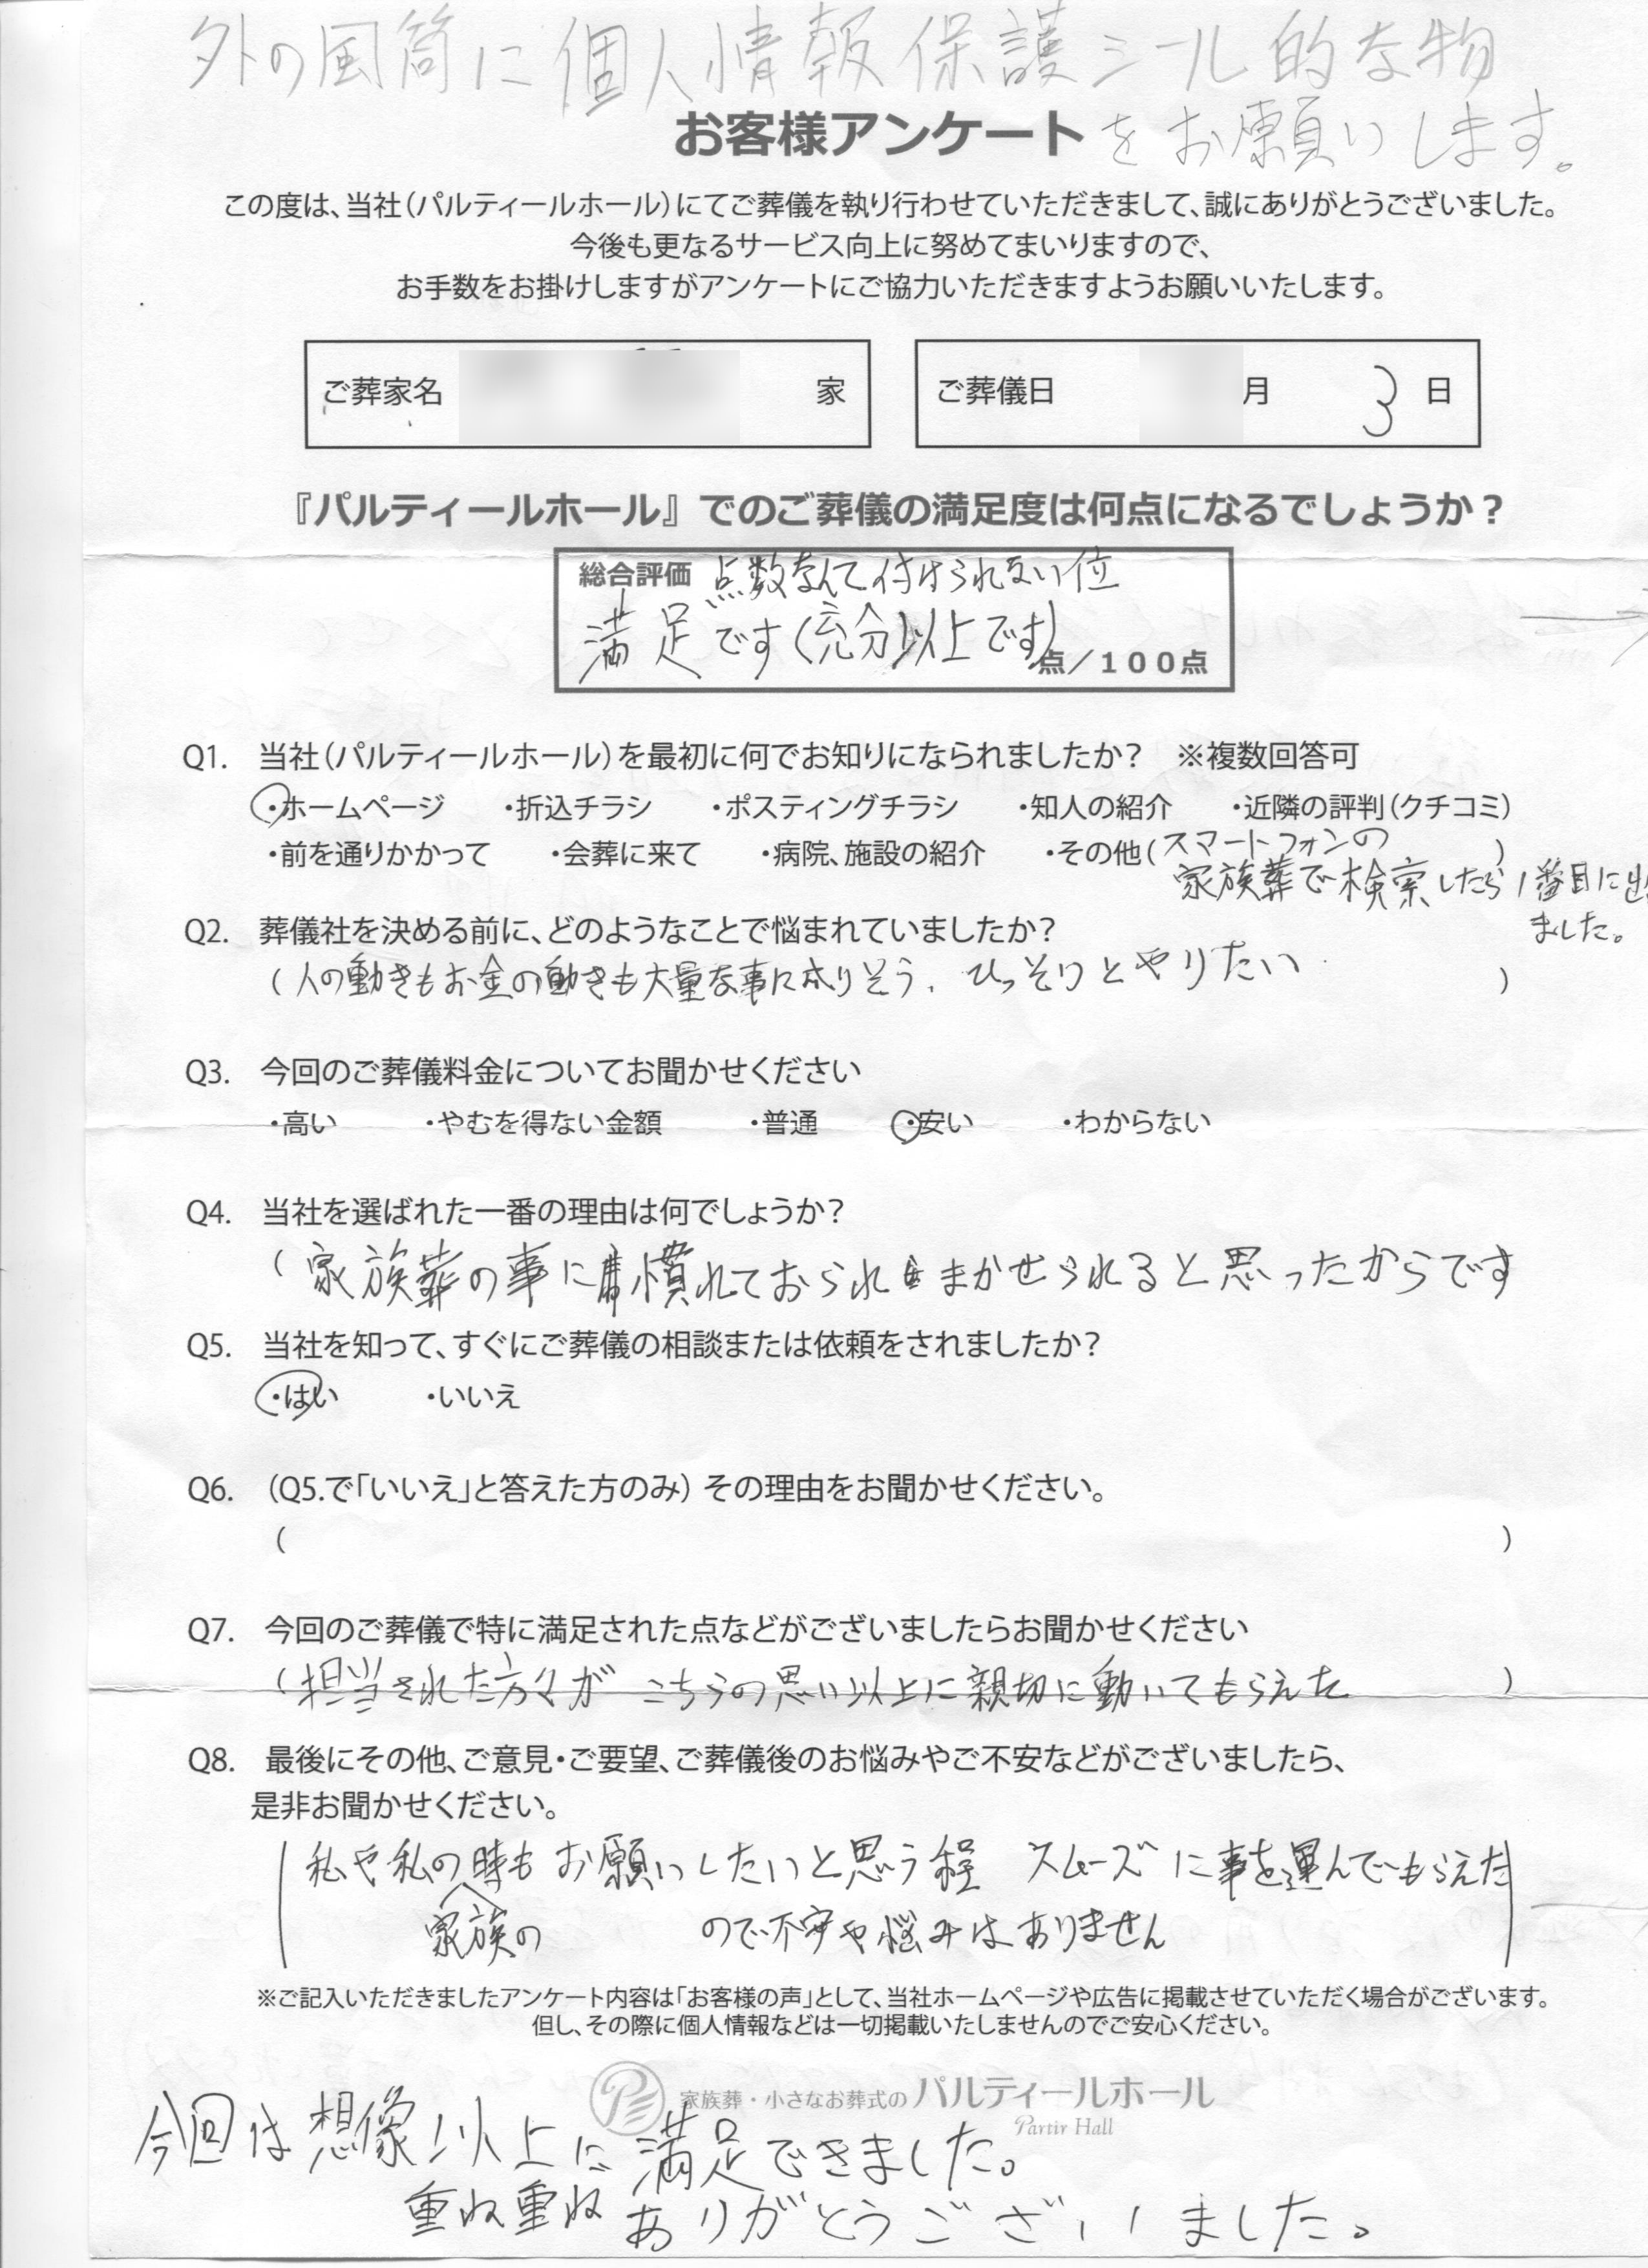 外の風筒に個人情報保護シール的な物
をお願いします。
お客様アンケート
この度は、当社（パルティールホール）にてご葬儀を執り行わせていただきまして、誠にありがとうございました。
今後も更なるサービス向上に努めてまいりますので、
お手数をお掛けしますがアンケートにご協力いただきますようお願いいたします。
ご葬家名 家
ご葬儀日 月 3 日
『パルティールホール』でのご葬儀の満足度は何点になるでしょうか？
総合評価 点数なんて付けられない位
満足です（充分以上です）
点／１００点
Q1. 当社（パルティールホール）を最初に何でお知りになられましたか？ ※複数回答可
・ホームページ ・折込チラシ ・ポスティングチラシ ・知人の紹介 ・近隣の評判（クチコミ）
・前を通りかかって ・会葬に来て ・病院、施設の紹介 ・その他（スマートフォンの ）
家族葬で検索したら1番目に出
ました。
Q2. 葬儀社を決める前に、どのようなことで悩まれていましたか？
（人の動きもお金の動きも大量な事に成りそう、ひっそりとやりたい ）
Q3. 今回のご葬儀料金についてお聞かせください
・高い ・やむを得ない金額 ・普通 ・安い ・わからない
Q4. 当社を選ばれた一番の理由は何でしょうか？
（家族葬の事に慣れておられまかせられると思ったからです
Q5. 当社を知って、すぐにご葬儀の相談または依頼をされましたか？
・はい ・いいえ
Q6. （Q5.で「いいえ」と答えた方のみ）その理由をお聞かせください。
（ ）
Q7. 今回のご葬儀で特に満足された点などがございましたらお聞かせください
（担当された方々がこちらの思い以上に親切に動いてもらえた ）
Q8. 最後にその他、ご意見・ご要望、ご葬儀後のお悩みやご不安などがございましたら、
是非お聞かせください。
私や私の時もお願いしたいと思う程 スムーズに事を運んでもらえた
家族の
ので不安や悩みはありません
※ご記入いただきましたアンケート内容は「お客様の声」として、当社ホームページや広告に掲載させていただく場合がございます。
但し、その際に個人情報などは一切掲載いたしませんのでご安心ください。
家族葬・小さなお葬式の パルティールホール
Partir Hall
今回は想像以上に満足できました。
重ね重ねありがとうございました。